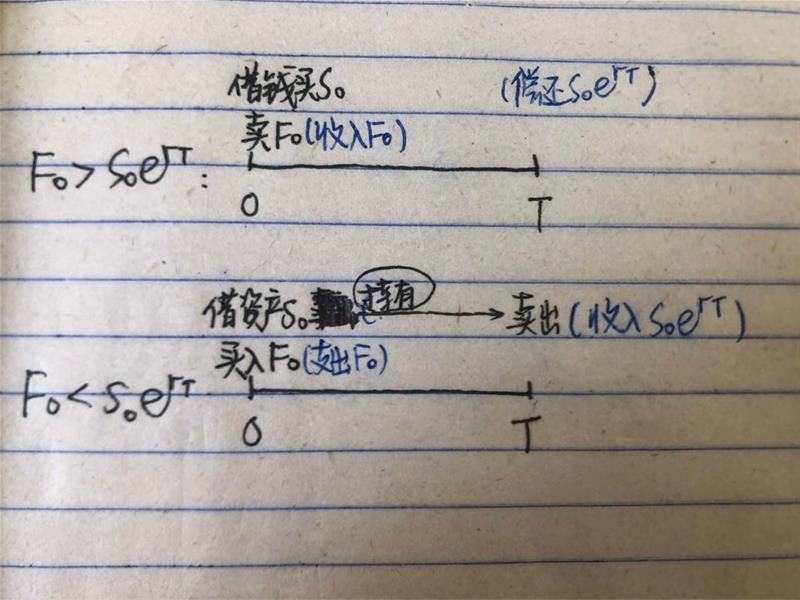 借钱买S₀ (偿还S₀e^rT)
卖F₀(收入F₀)
F₀ > S₀e^rT:
0 T
借资产S₀ 持有 卖出(收入S₀e^rT)
买入F₀(支出F₀)
F₀ < S₀e^rT
0 T